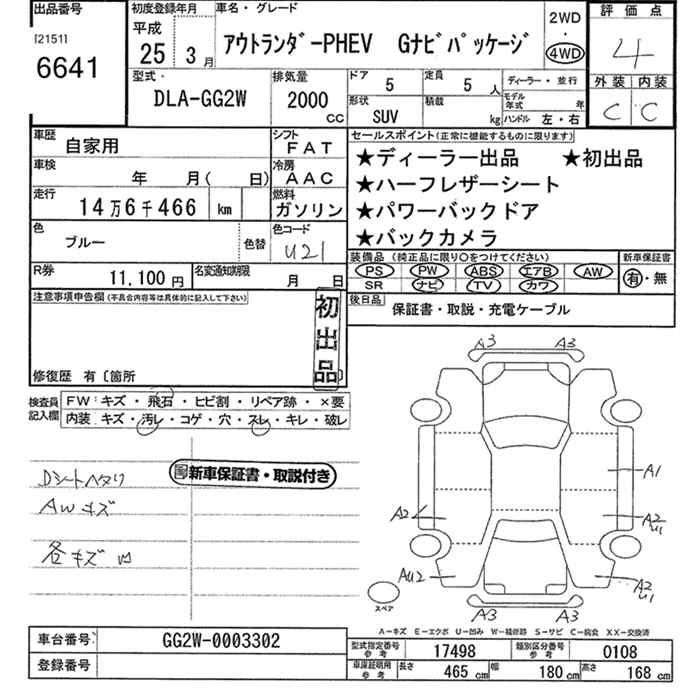 出品番号
[2151]
6641
初度登録年月
平成
25 3月
車名・グレード
アウトランダーPHEV Gナビパッケージ
2WD
・
4WD
評価点
4
外装 内装
C C
型式
DLA-GG2W
排気量
2000
CC
ドア
5
定員
5 人
形状
SUV
積載
kg
ディーラー・並行
モデル年式
年
ハンドル 左・右
車歴
自家用
シフト
FAT
車検
年 月( 日)
冷房
AAC
走行
14万6千466 km
燃料
ガソリン
色
ブルー
色替
色コード
U21
R券
11,100円
名変通知期限
月 日
セールスポイント(正常に機能するものに限ります)
★ディーラー出品 ★初出品
★ハーフレザーシート
★パワーバックドア
★バックカメラ
装備品(純正品に限り○をつけてください)
PS PW ABS エアB AW
SR ナビ TV カワ
新車保証書
有・無
後日品
保証書・取説・充電ケーブル
注意事項申告欄(不具合内容等は具体的に記入して下さい)
初出品
修復歴 有〔箇所 〕
検査員記入欄
FW:キズ・飛石・ヒビ割・リペア跡・×要
内装・キズ・汚レ・コゲ・穴・スレ・キレ・破レ
新車保証書・取説付き
Dシートヘタリ
AWキズ
各キズ凹
A3 A3
A1
A2
A2 U1
AU2
A2 U1
スペア
A3 A3
A-キズ E-エクボ U-凹み W-補修跡 S-サビ C-腐食 XX-交換済
車台番号
GG2W-0003302
登録番号
型式指定番号
参考
17498
類別区分番号
参考
0108
車庫証明用
参考
長さ
465 cm
幅
180 cm
高さ
168 cm